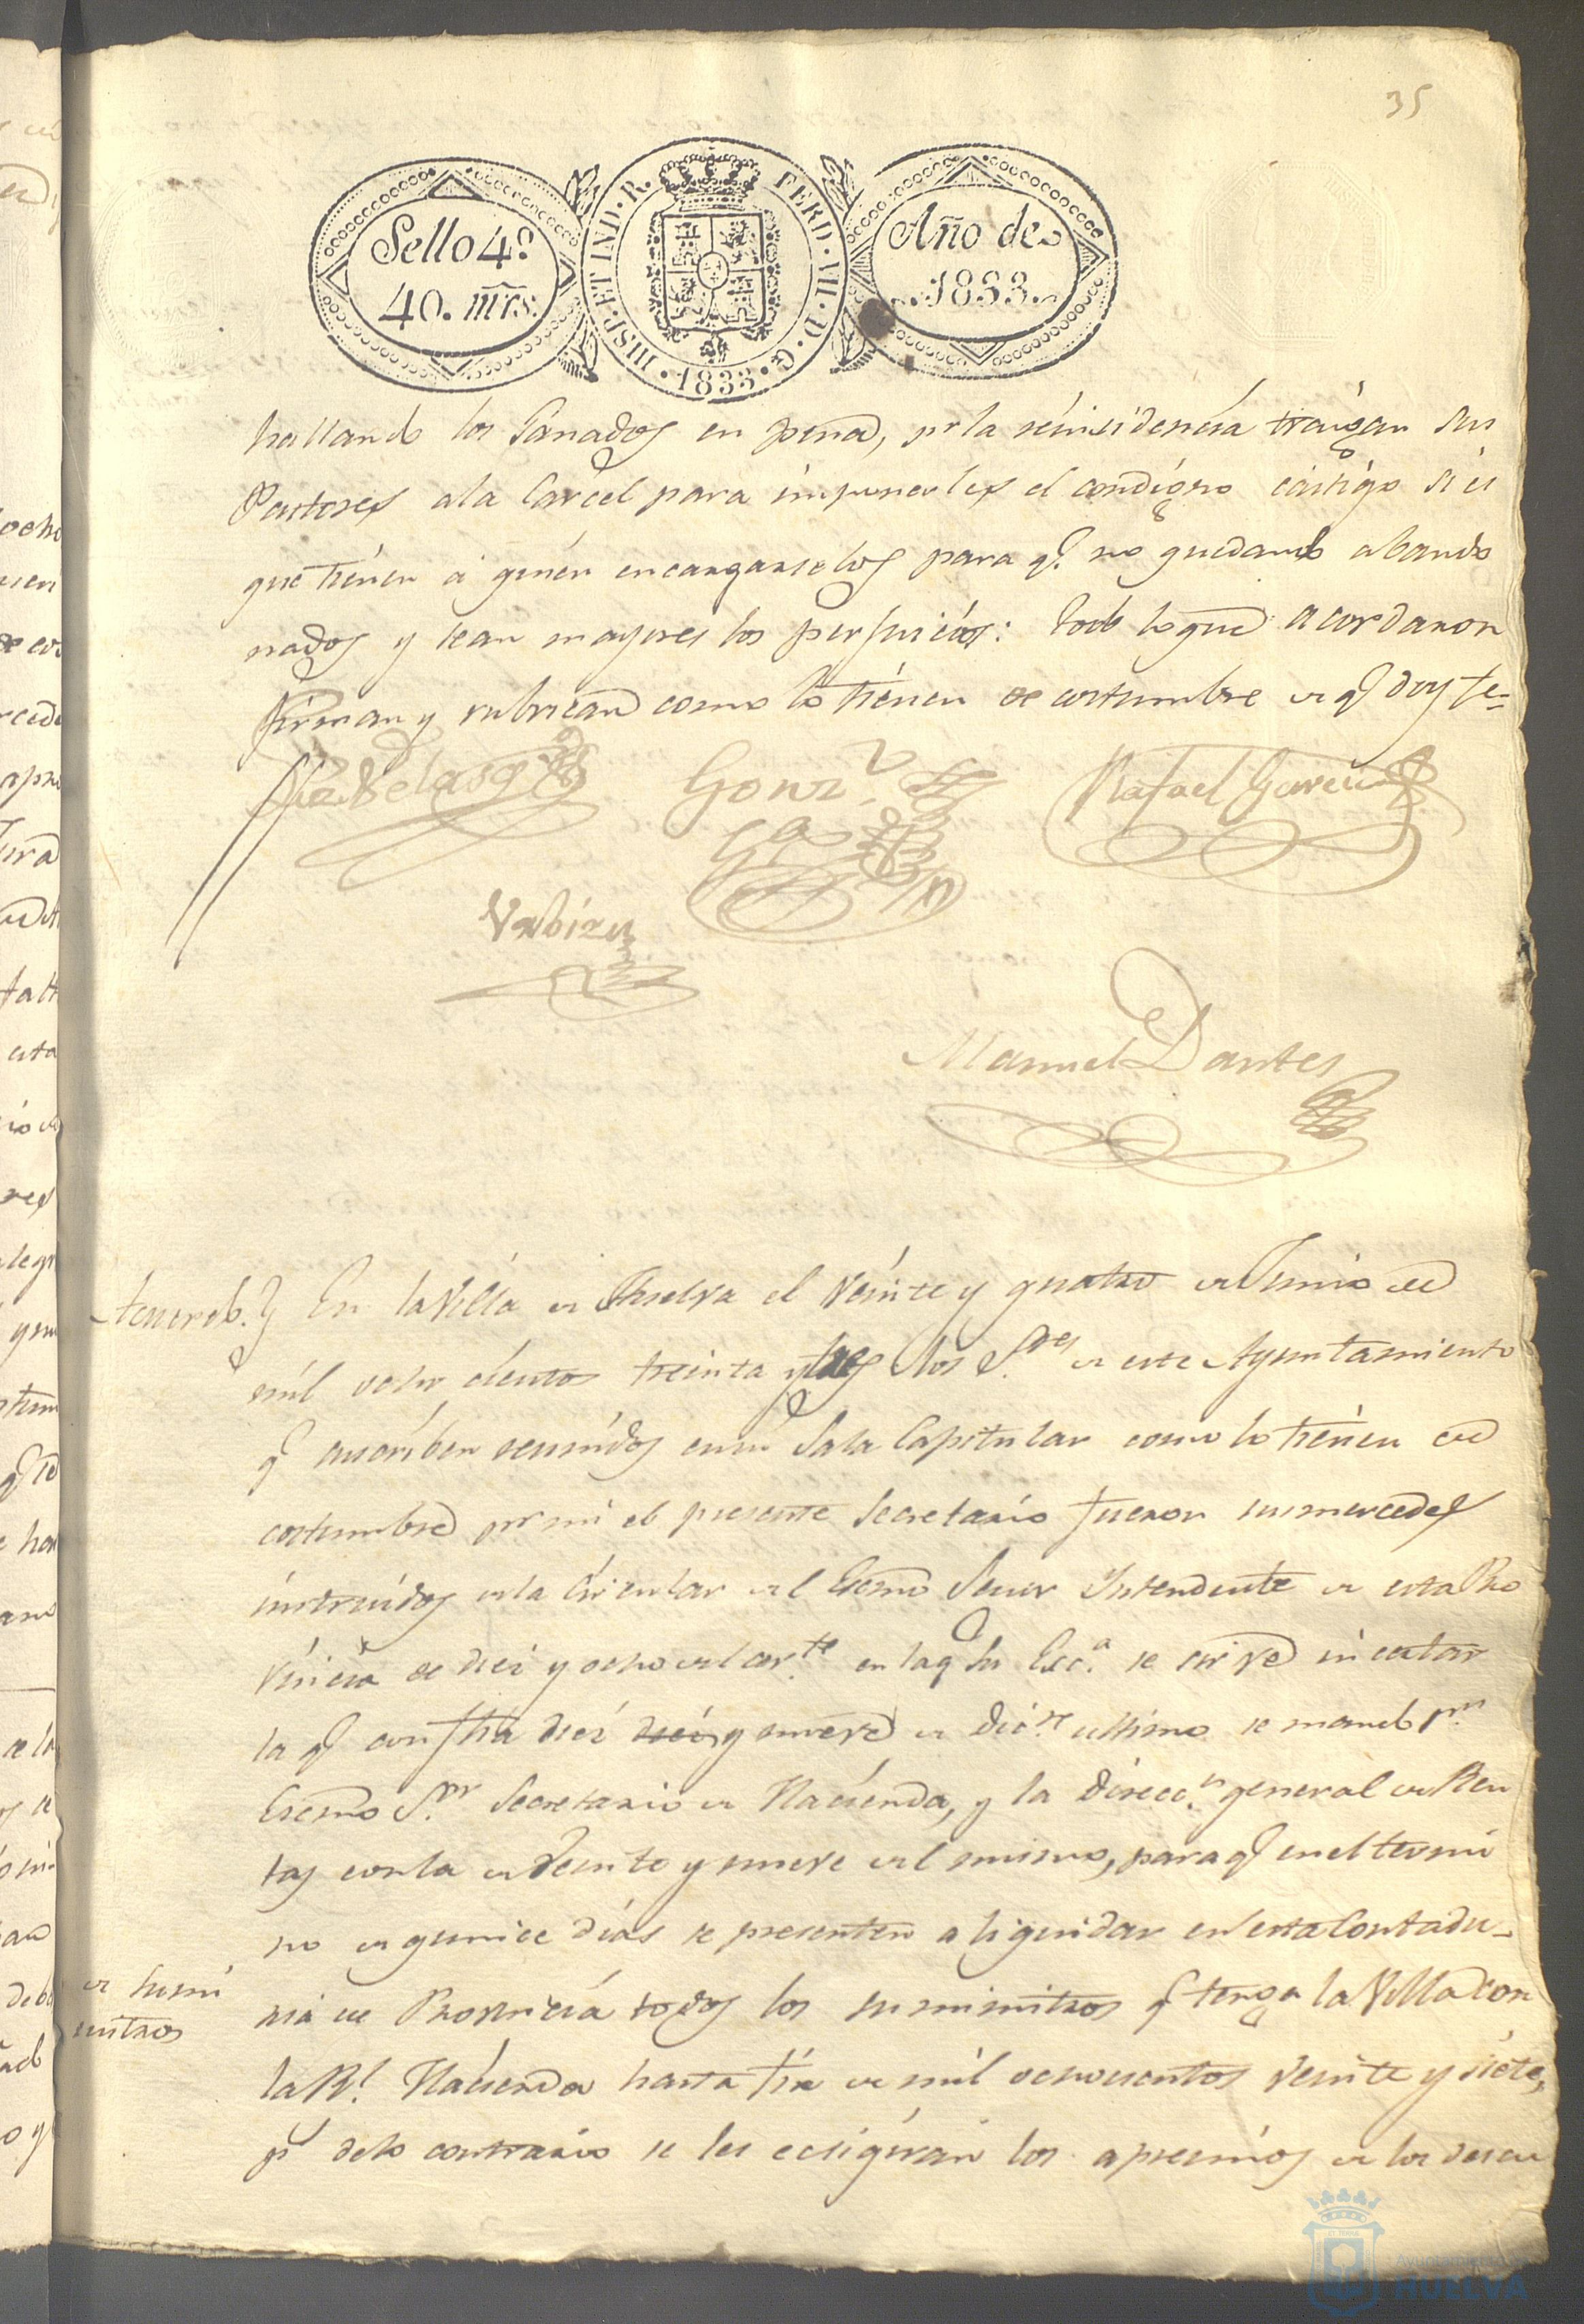 35
Sello 4º
40. mrs.
HISP. ET IND. R. FERD. VII. D. G. 1833.
Año de
1833.
hallando los Ganados en pena, pr la reinsidensia traigan sus
Pastores ala Carcel para imponerles el condigno castigo si es
que tienen á quien encargarselos para q.e no quedando abando
nados y sean mayores los perjuicios: todo lo que acordaron
firman y rubrican como lo tienen de costumbre de q.e doy fe
Velasq
Gonz.
Rafael Garcia
Manuel Dantes
En la Villa de Huelva el Veinte y quatro de Junio de
mil ocho cientos treinta y tres los S.res de este Ayuntamiento
q.e suscriben reunidos en su Sala Capitular como lo tienen de
costumbre pr mi el presente Secretario fueron sus mercedes
instruidos de la Circular del Escmo Señor Intendente de esta Pro
vincia de diez y ocho del cor.te en la q.e Su Exc.a se sirve incertar
la q.e con fha diez diez y nueve de Dic.re ultimo se mando pr
Escmo S.or Secretario de Hacienda, y la Direcc.n general de Ren
tas con la de Veinte y nueve del mismo, para q.e en el termi
no de quince dias se presenten a liquidar en esta Contadu-
de sumi
ria de Provincia todos los suministros q.e tenga la Villa con
nistros
la R.l Hacienda hasta fin de mil ochocientos Veinte y siete,
pr delo contrario se les ecsigiran los apremios de los descu
Ayuntamiento
HUELVA